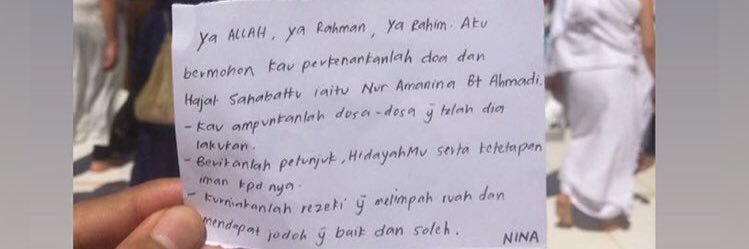 Ya ALLAH, Ya Rahman, Ya Rahim. Aku
bermohon kau perkenankanlah doa dan
Hajat Sahabatku iaitu Nur Amanina Bt Ahmadi.
- Kau ampunkanlah dosa-dosa ÿ telah dia
lakukan.
- Berikanlah petunjuk, HidayahMu serta ketetapan
iman kpd nya.
- Kurniakanlah rezeki ÿ melimpah ruah dan
mendapat jodoh ÿ baik dan soleh.
NINA